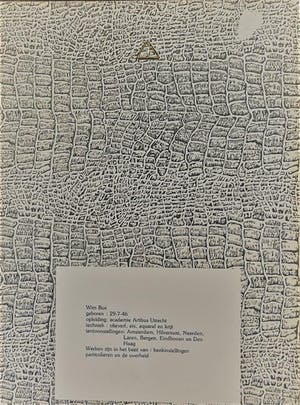 Wim Bus
geboren : 29-7-46
opleiding: academie Artibus Utrecht
techniek : olieverf, ets, aquarel en krijt
tentoonstellingen: Amsterdam, Hilversum, Naarden,
Laren, Bergen, Eindhoven en Den
Haag
Werken zijn in het bezit van : bankinstellingen
particulieren en de overheid